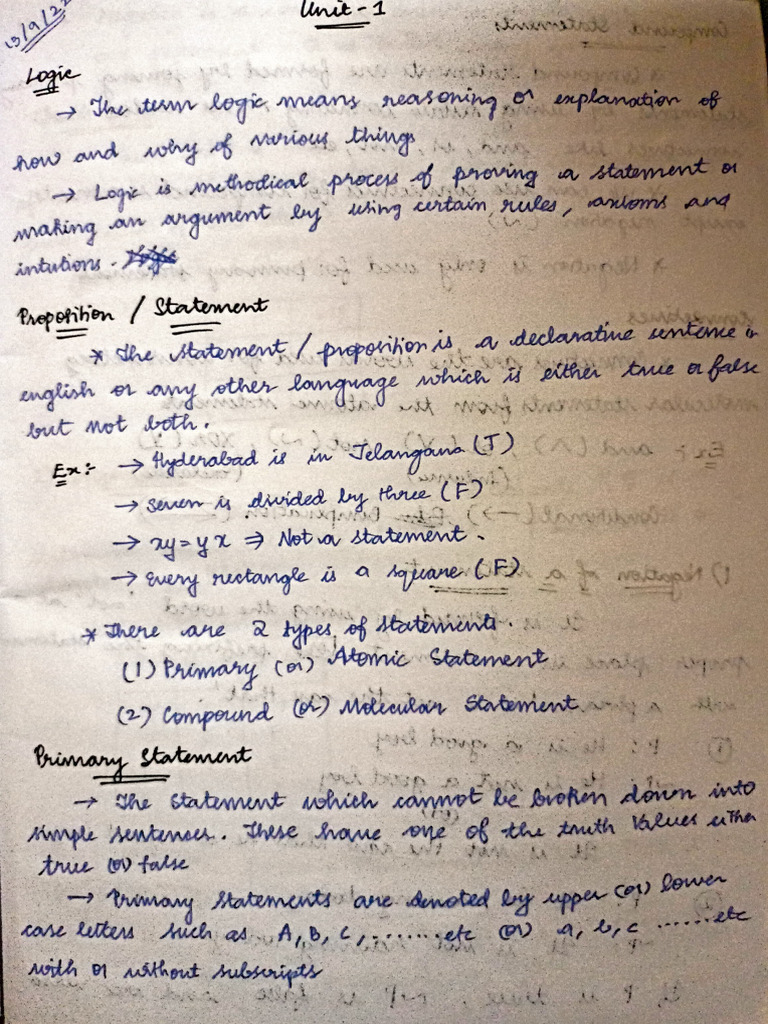 Unit - 1
Logic
→ The term logic means reasoning or explanation of
how and why of various things
→ Logic is methodical process of proving a statement or
making an argument by using certain rules, axioms and
intutions.
Proposition / Statement
* The statement / proposition is a declarative sentence in
english or any other language which is either true or false
but not both.
Ex:- → Hyderabad is in Telangana (T)
→ seven is divided by three (F)
→ xy = yx ⇒ Not a statement.
→ Every rectangle is a square (F)
* There are 2 types of statements.
(1) Primary (or) Atomic Statement
(2) Compound (or) Molecular Statement
Primary Statement
→ The statement which cannot be broken down into
simple sentences. These have one of the truth values either
true (or) false
→ Primary statements are denoted by upper (or) lower
case letters such as A, B, C, ........etc (or) a, b, c ......etc
with or without subscripts